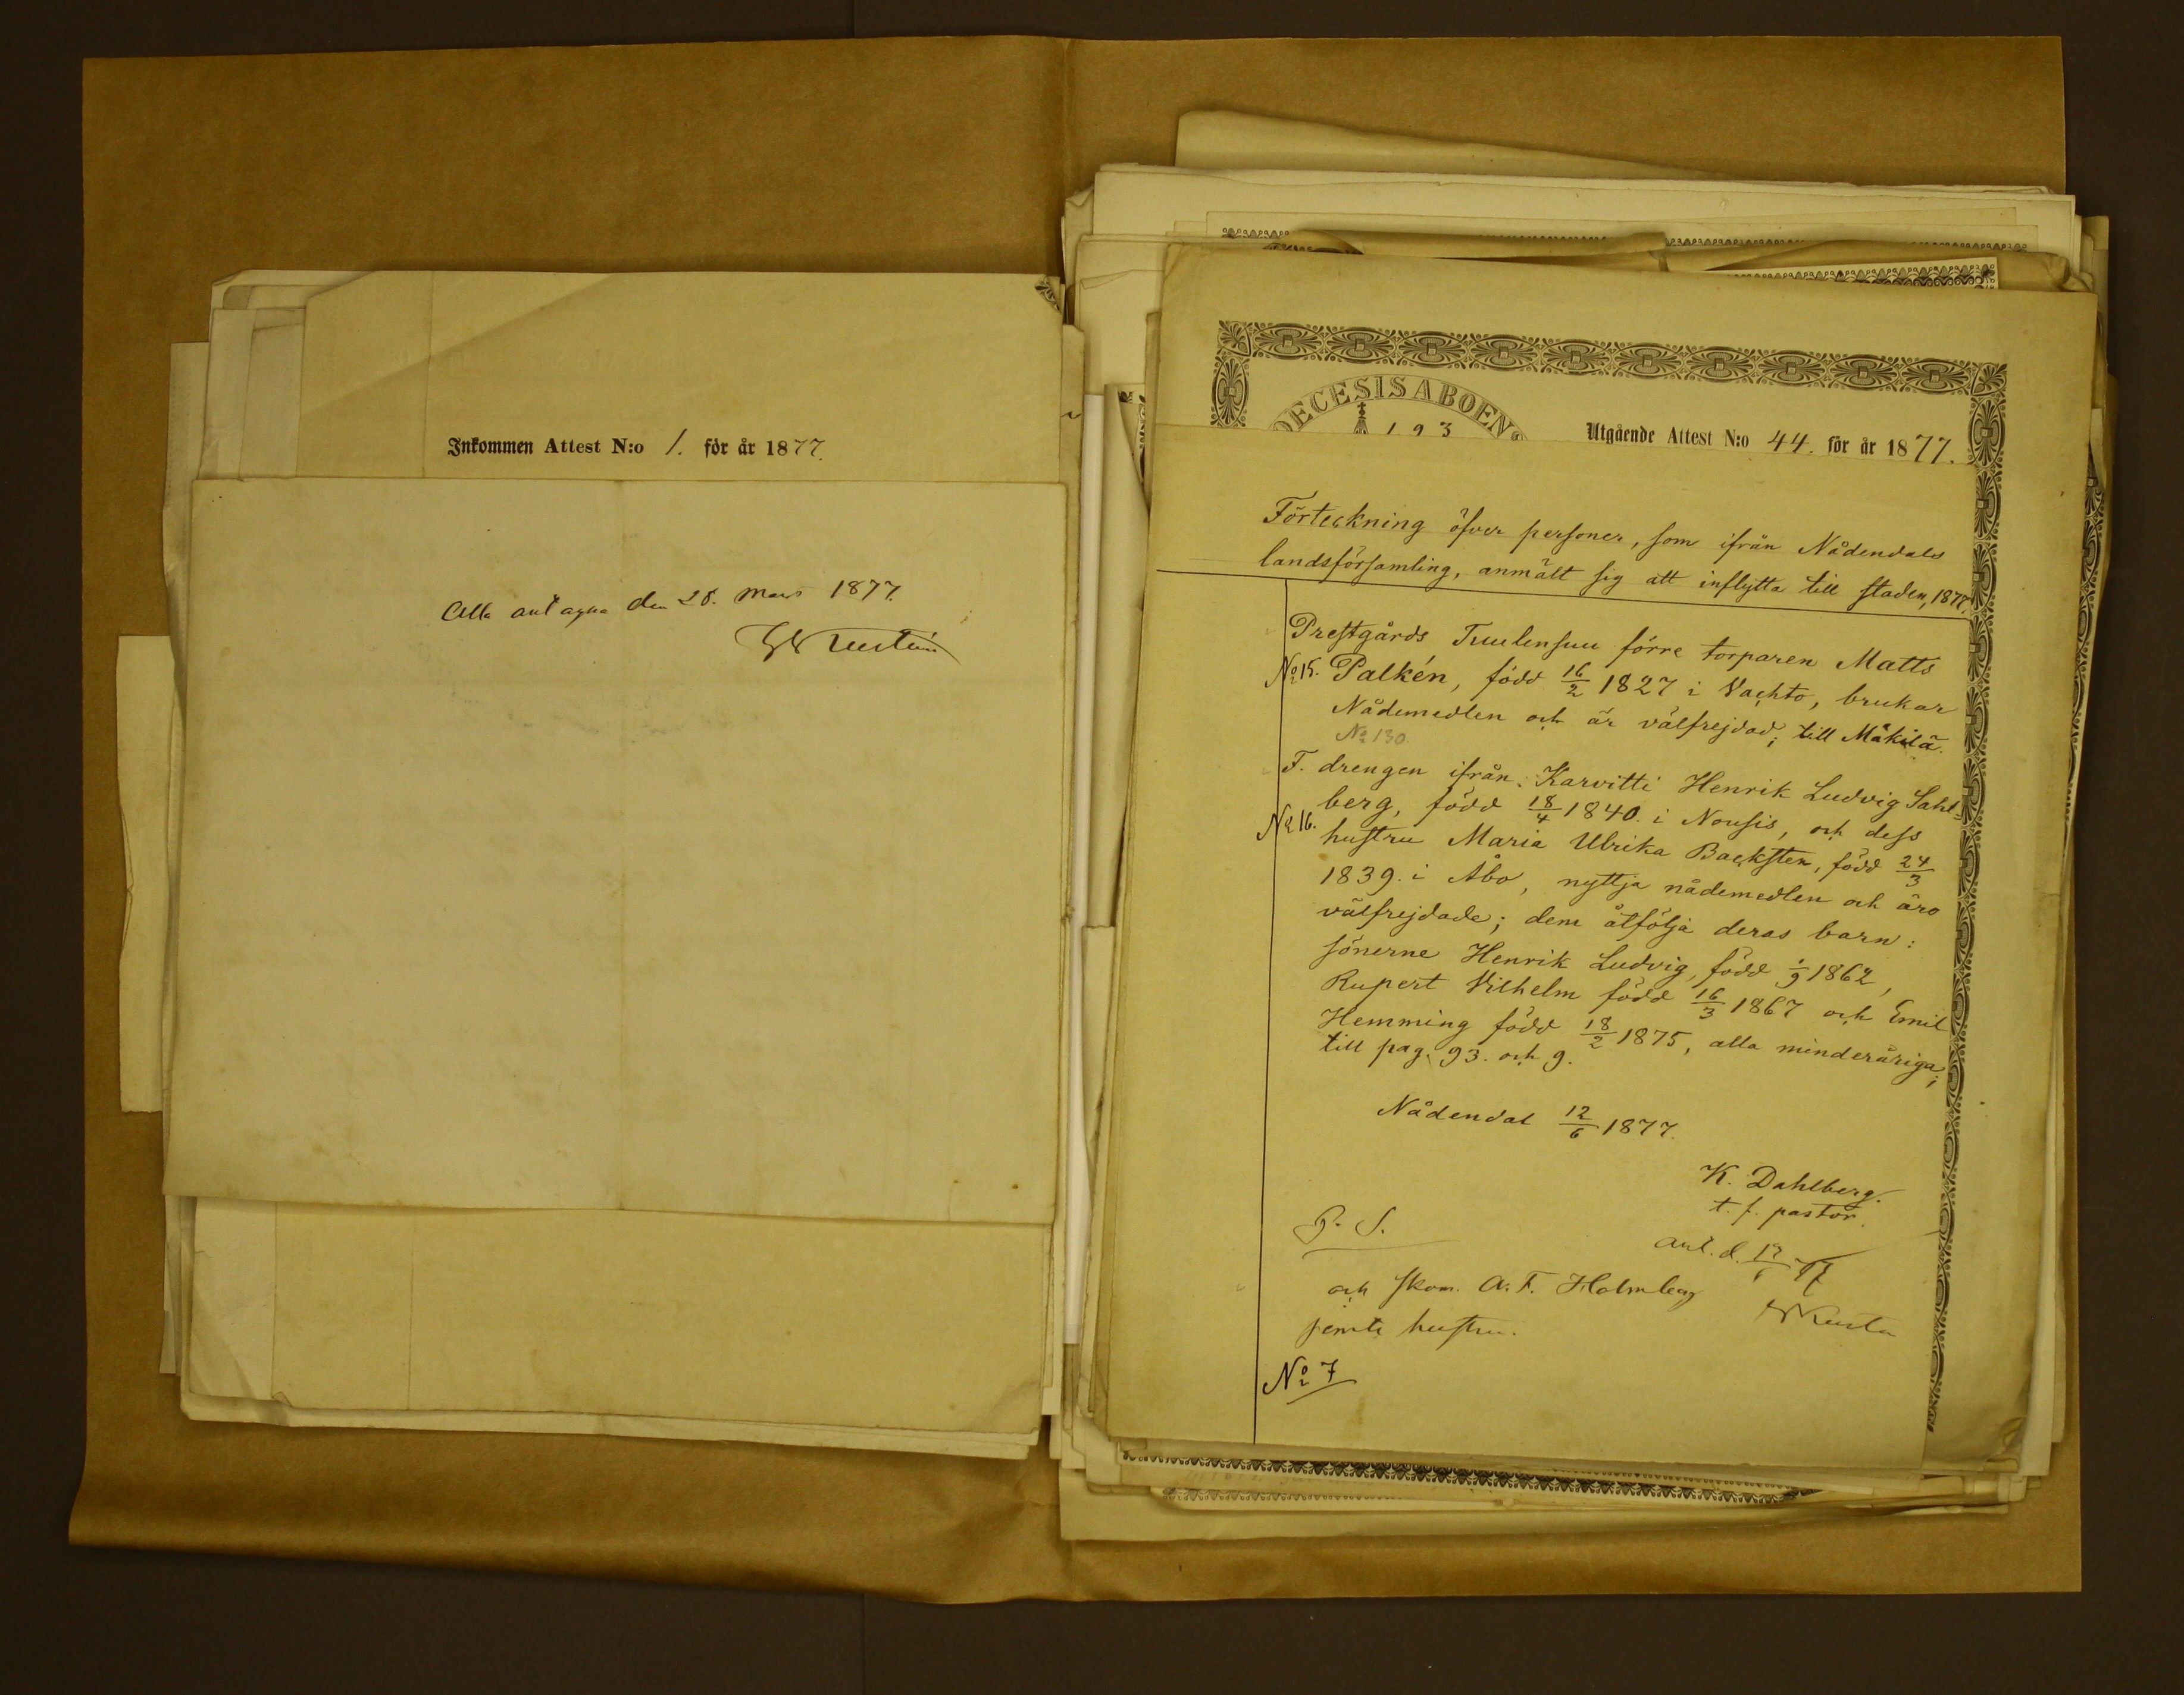 Inkommen Attest N:o 1. för år 1877.
Alla antagna den 28. Mars 1877.
DECESIS ABOENS
193
Utgående Attest N:o 44. för år 1877.
Förteckning öfver personer, som ifrån Nådendals
landsförsamling, anmält sig att inflytta till staden, 1877.
Prestgårds Tuulensuu förre torparen Matts
No 15. Palkén, född 16/2 1827 i Vachto, brukar
Nådemedlen och är välfrejdad; till Mäkilä.
No 130.
F. drengen ifrån Karvitti Henrik Ludvig Sahl-
berg, född 18/4 1840. i Nousis, och dess
No 16. hustru Maria Ulrika Backsten, född 24/3
1839. i Åbo, nyttja nådemedlen och äro
välfrejdade; dem åtfölja deras barn:
sönerne Henrik Ludvig, född 1/9 1862,
Rupert Vilhelm född 16/3 1867 och Emil
Hemming född 18/2 1875, alla minderåriga;
till pag. 93. och 9.
Nådendal 12/6 1877.
K. Dahlberg.
t. f. pastor.
P. S.
ant. d.
och skom. A. F. Holmberg
jemte hustru.
No 7